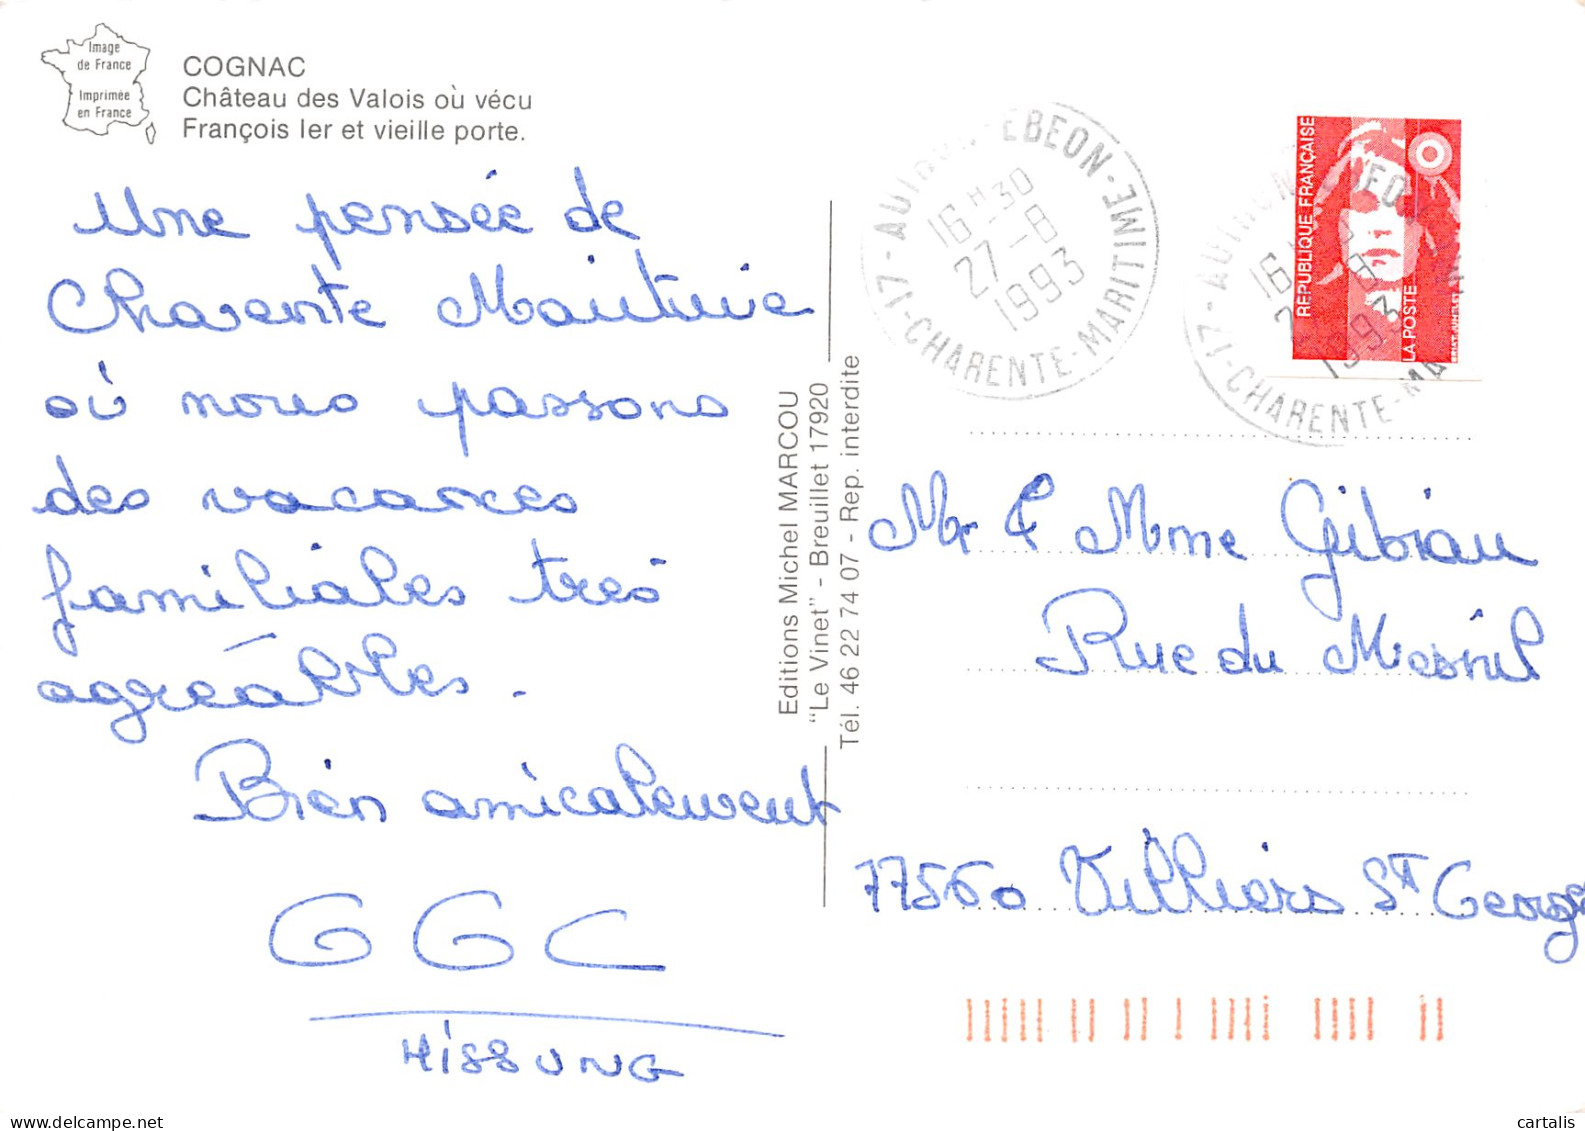 Image
de France
Imprimée
en France
COGNAC
Château des Valois où vécu
François Ier et vieille porte.
Une pensée de
Charente Maritime
où nous passons
des vacances
familiales très
agréables.
Bien amicalement
GGC
MISSUNG
Editions Michel MARCOU
"Le Vinet" - Breuillet 17920
Tél. 46 22 74 07 - Rep. interdite
16 H 30
27-8
1993
17-CHARENTE-MARITIME
RÉPUBLIQUE FRANÇAISE
LA POSTE
16
1993
17-CHARENTE-MA
Mr & Mme Gibiau
Rue du Mesnil
77560 Villiers St Georges
www.delcampe.net
cartalis